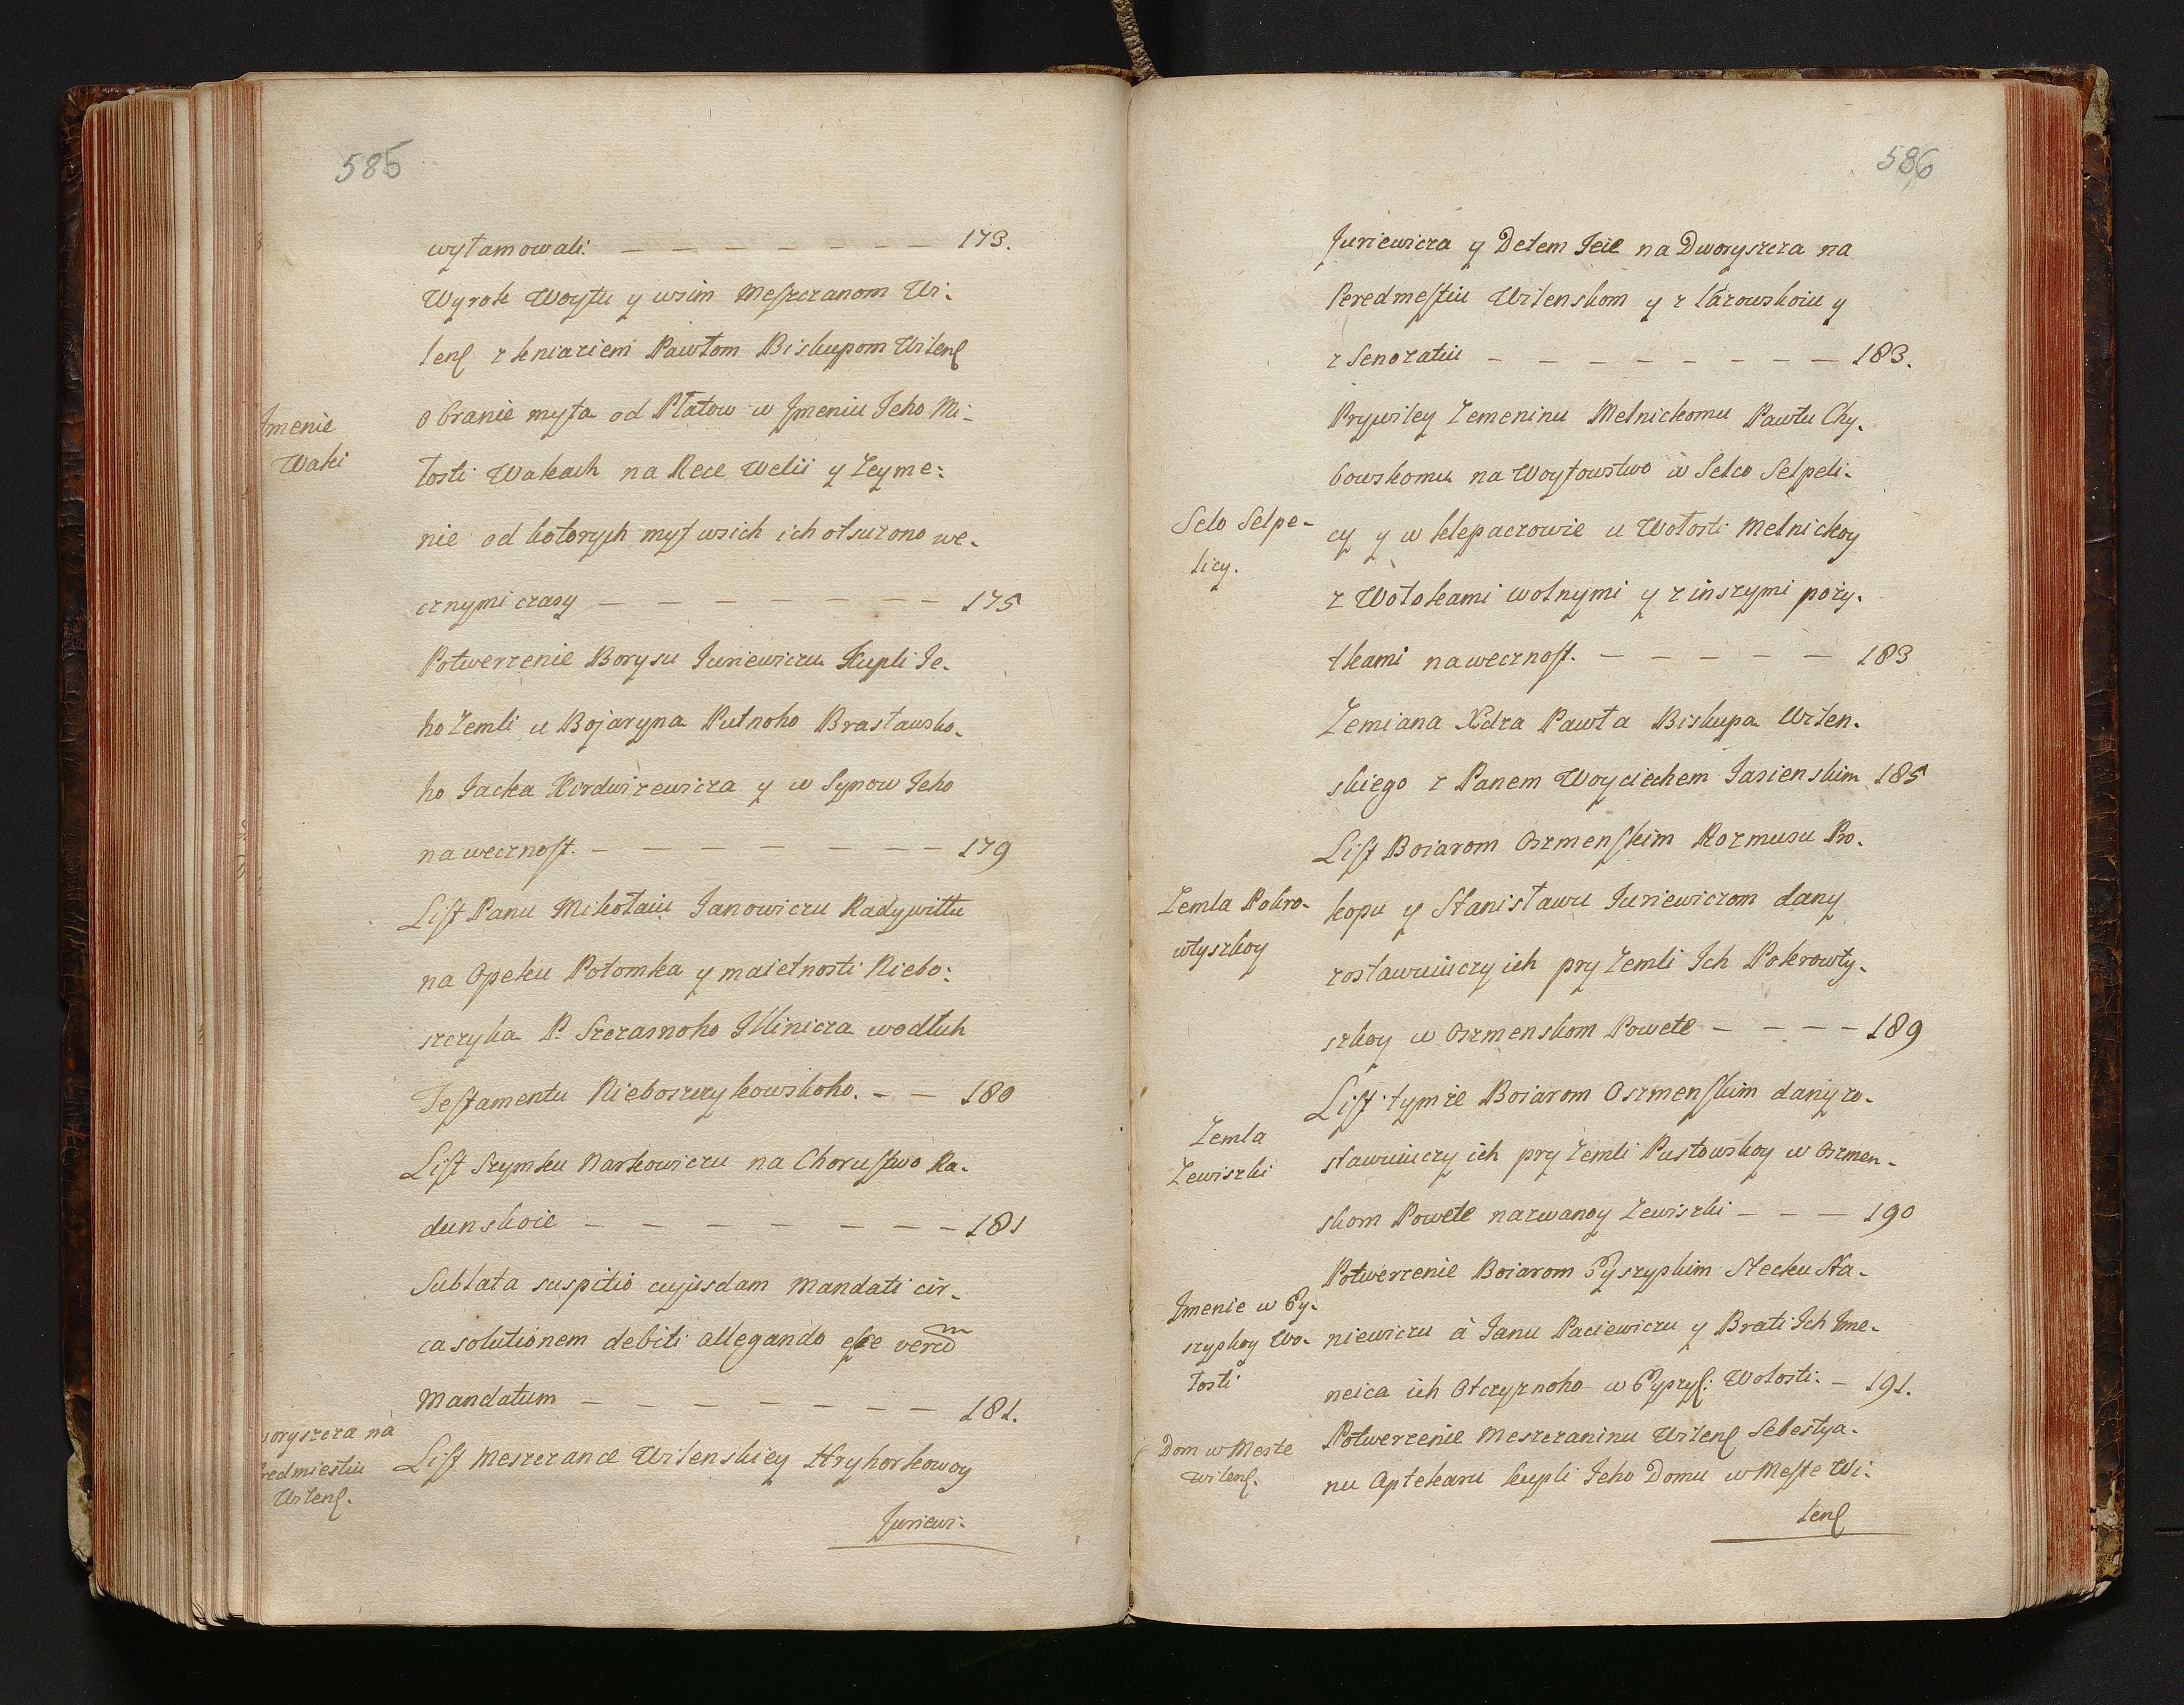 585
wyłamowali. — — — — — — — 173.
Wyrok Woytu y wsim Meszczanom Wi-
lenſ z kniaziem Pawłom Biskupom Wilenſ
Jmenie
Waki
o branie myta od Płatow w Jmeniu Jeho Mi-
łosti Wakach na Rece Welii y Zeyme:
nie od kotorych myt wsich ich otsuzono we-
cznymi czasy — — — — — — — 175
Potwerzenie Borysu Juriewiczu Kupli Je-
ho Zemli u Bojaryna Putnoho Brasławsko-
ho Jacka Kirdwizewicza y w Synow Jeho
na wecznoſt. — — — — — — — 179
Liſt Panu Mikołaiu Janowiczu Radywiłłu
na Opeku Potomka y maietnosti Niebo:
szczyka P. Szczasnoho Jllinicza wodłuh
Teſtamentu Nieboszczykowskoho. — — 180
Liſt Szymku Narkowiczu na Choruſtwo Ra-
dunskoie — — — — — — — 181
Sublata suspitio cujusdam mandati cir-
ca solutionem debiti allegando eſse verũ
Mandatum — — — — — — — 181.
woryszcza na
redmiestiu
Wilenſ.
Liſt Meszczance Wilenskiey Hryhorkowoy
Juriewi-
586
Juriewicza y Detem Jeie na Dworyszcza na
Peredmeſtiu Wilenskom y z Łazowskoiu y
z Senozatiu — — — — — — — 183.
Prywiley Zemeninu Melnickomu Pawłu Chy-
bowskomu na Woytowstwo w Selco Selpeli-
Selo Selpe-
licy.
cy y w klepaczowie u Wołosti Melnickoy
z Wołokami wolnymi y z inszymi poży-
tkami na wecznoſt. — — — — — 183
Zemiana Xdza Pawła Biskupa Wilen-
skiego z Panem Woyciechem Jasienskim 185
Liſt Boiarom Oszmenſkim Rozmusu Pro-
Zemla Pokro-
wtyszkoy
kopu y Stanisławu Juriewiczom dany
zostawuiuczy ich pry Zemli Ich Pokrowty-
szkoy w Oszmenskom Powete — — — — 189
Liſt tymże Boiarom Oszmenſkim dany zo-
Zemla
Zewiszki
stawuiuczy ich pry Zemli Pustowskoy w Oszmen-
skom Powete nazwanoy Zewiszki — — — 190
Potwerzenie Boiarom Pyszyskim Stecku Sta-
Jmenie w Py-
szyskoy Wo-
łosti
niewiczu à Janu Paciewiczu y Brati Jch Jme-
neica ich Otczyznoho w Pyszyſ: Wołosti. — 191.
Dom w Meste
Wilenſ.
Potwerzenie Meszczaninu Wilenſ Sebestya-
nu Aptekaru kupli Jeho Domu w Meſte Wi-
lenſ